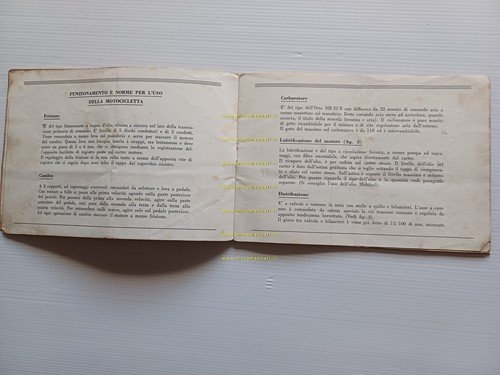 FUNZIONAMENTO E NORME PER L'USO
DELLA MOTOCICLETTA
Frizione
E' del tipo funzionante a bagno d'olio, situata a sinistra nel lato della trasmis-
sione primaria di comando. E' fornita di 5 dischi conduttori e di 5 condotti.
Viene comandata a mano leva sul manubrio e serve per staccare il motore
dal cambio. Questa leva non bisogna usarla a strappi, ma lentamente e deve
avere un gioco di 3 ÷ 4 mm. che si ottengono mediante la registrazione del
l'apposito tiretto di registro posto sul carter motore.
Il registraggio della frizione si fa una volta tanto a mezzo dell'apposita vite di
registro che si regola dopo aver tolto il tappo dal coperchio sinistro.
Cambio
A 4 rapporti, ad ingranaggi scorrevoli comandato da selettore e leva a pedale.
Con motore in moto, per passare in prima velocità, agire sulla parte posteriore
del pedale. Per passare dalla prima alla seconda velocità, agire sulla parte
anteriore del pedale, così pure dalla seconda alla terza e dalla terza alla
quarta velocità. Per retrocedere nelle marce, agire solo sul pedale posteriore.
Ad ogni operazione di cambio staccare il motore a mezzo frizione.
Carburatore
E' del tipo dell'Orto MB 22 B con diffusore da 22 munito di comando aria a
mezzo manettino sul manubrio. Detto comando aria serve ad arricchire, quando
occorra, il titolo della miscela (benzina e aria). Il carburatore è pure munito
di vite di regolazione per il minimo e di vite regolabile dall'esterno.
Il getto del massimo sul carburatore è da 118 ed è intercambiabile.
Lubrificazione del motore (fig. 3)
La lubrificazione è del tipo a circolazione forzata, a mezzo pompa ad ingra-
naggi, con filtro smontabile, che aspira direttamente dal carter.
Il ricupero dell'olio, è per caduta sul carter stesso. Il livello dell'olio nel
carter è dato dall'astina graduata che si toglie svitando il tappo di riempimen-
to e sfiato sul carter stesso. Sull'astina è segnato il livello massimo e minimo
dell'olio. Per quanto riguarda il tipo dell'olio e la quantità vedi paragrafo
seguente. (Si consiglia l'uso dell'olio Mobiloil).
Distribuzione
E' a valvole e camines in testa con molle a spillo e bilancieri. L'asse a cam-
ma è comandato da catena speciale la cui tensione costante è regolata da
apposito tendicatena brevettato. (Vedi fig. 4).
Il gioco tra valvole e bilancieri è come già detto di 15/100 di mm. misurato